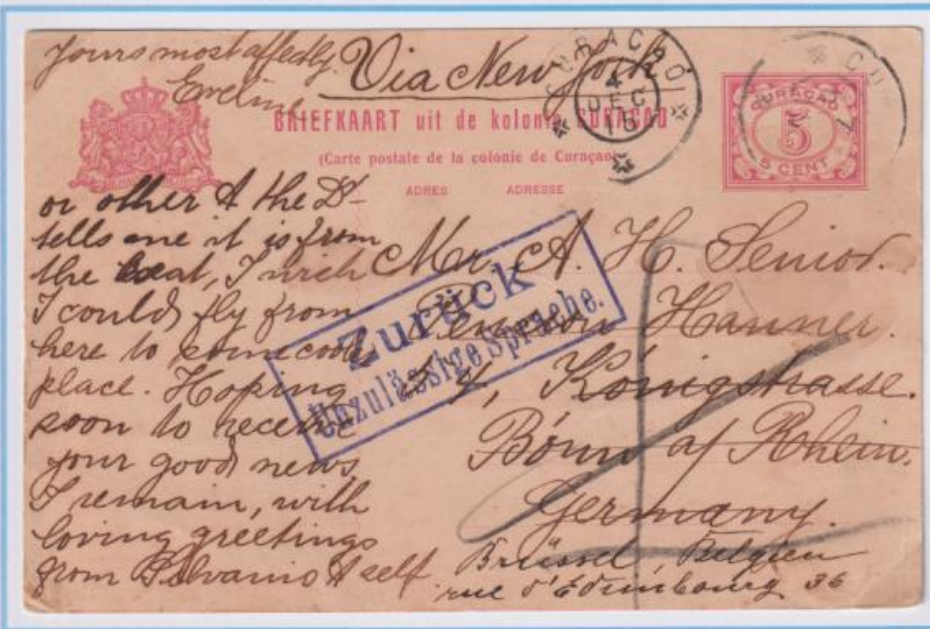 Yours most affectly.
Eveline
Via New York
CURAÇAO
4
DEC
15
BRIEFKAART uit de kolonie CURAÇAO
(Carte postale de la colonie de Curaçao)
ADRES ADRESSE
CURAÇAO
5
5 CENT
or other & the Dr
tells me it is from
the heat, I wish
I could fly from
here to some cool
place. Hoping
soon to receive
your good news,
I remain, with
loving greetings
from & self.
Zurück
Unzulässige Sprache.
Mr. A. H. Senior.
Pension Hanner.
Königstrasse.
Bonn a/ Rhein.
Germany.
Brüssel Belgien
rue d'Edimbourg 36